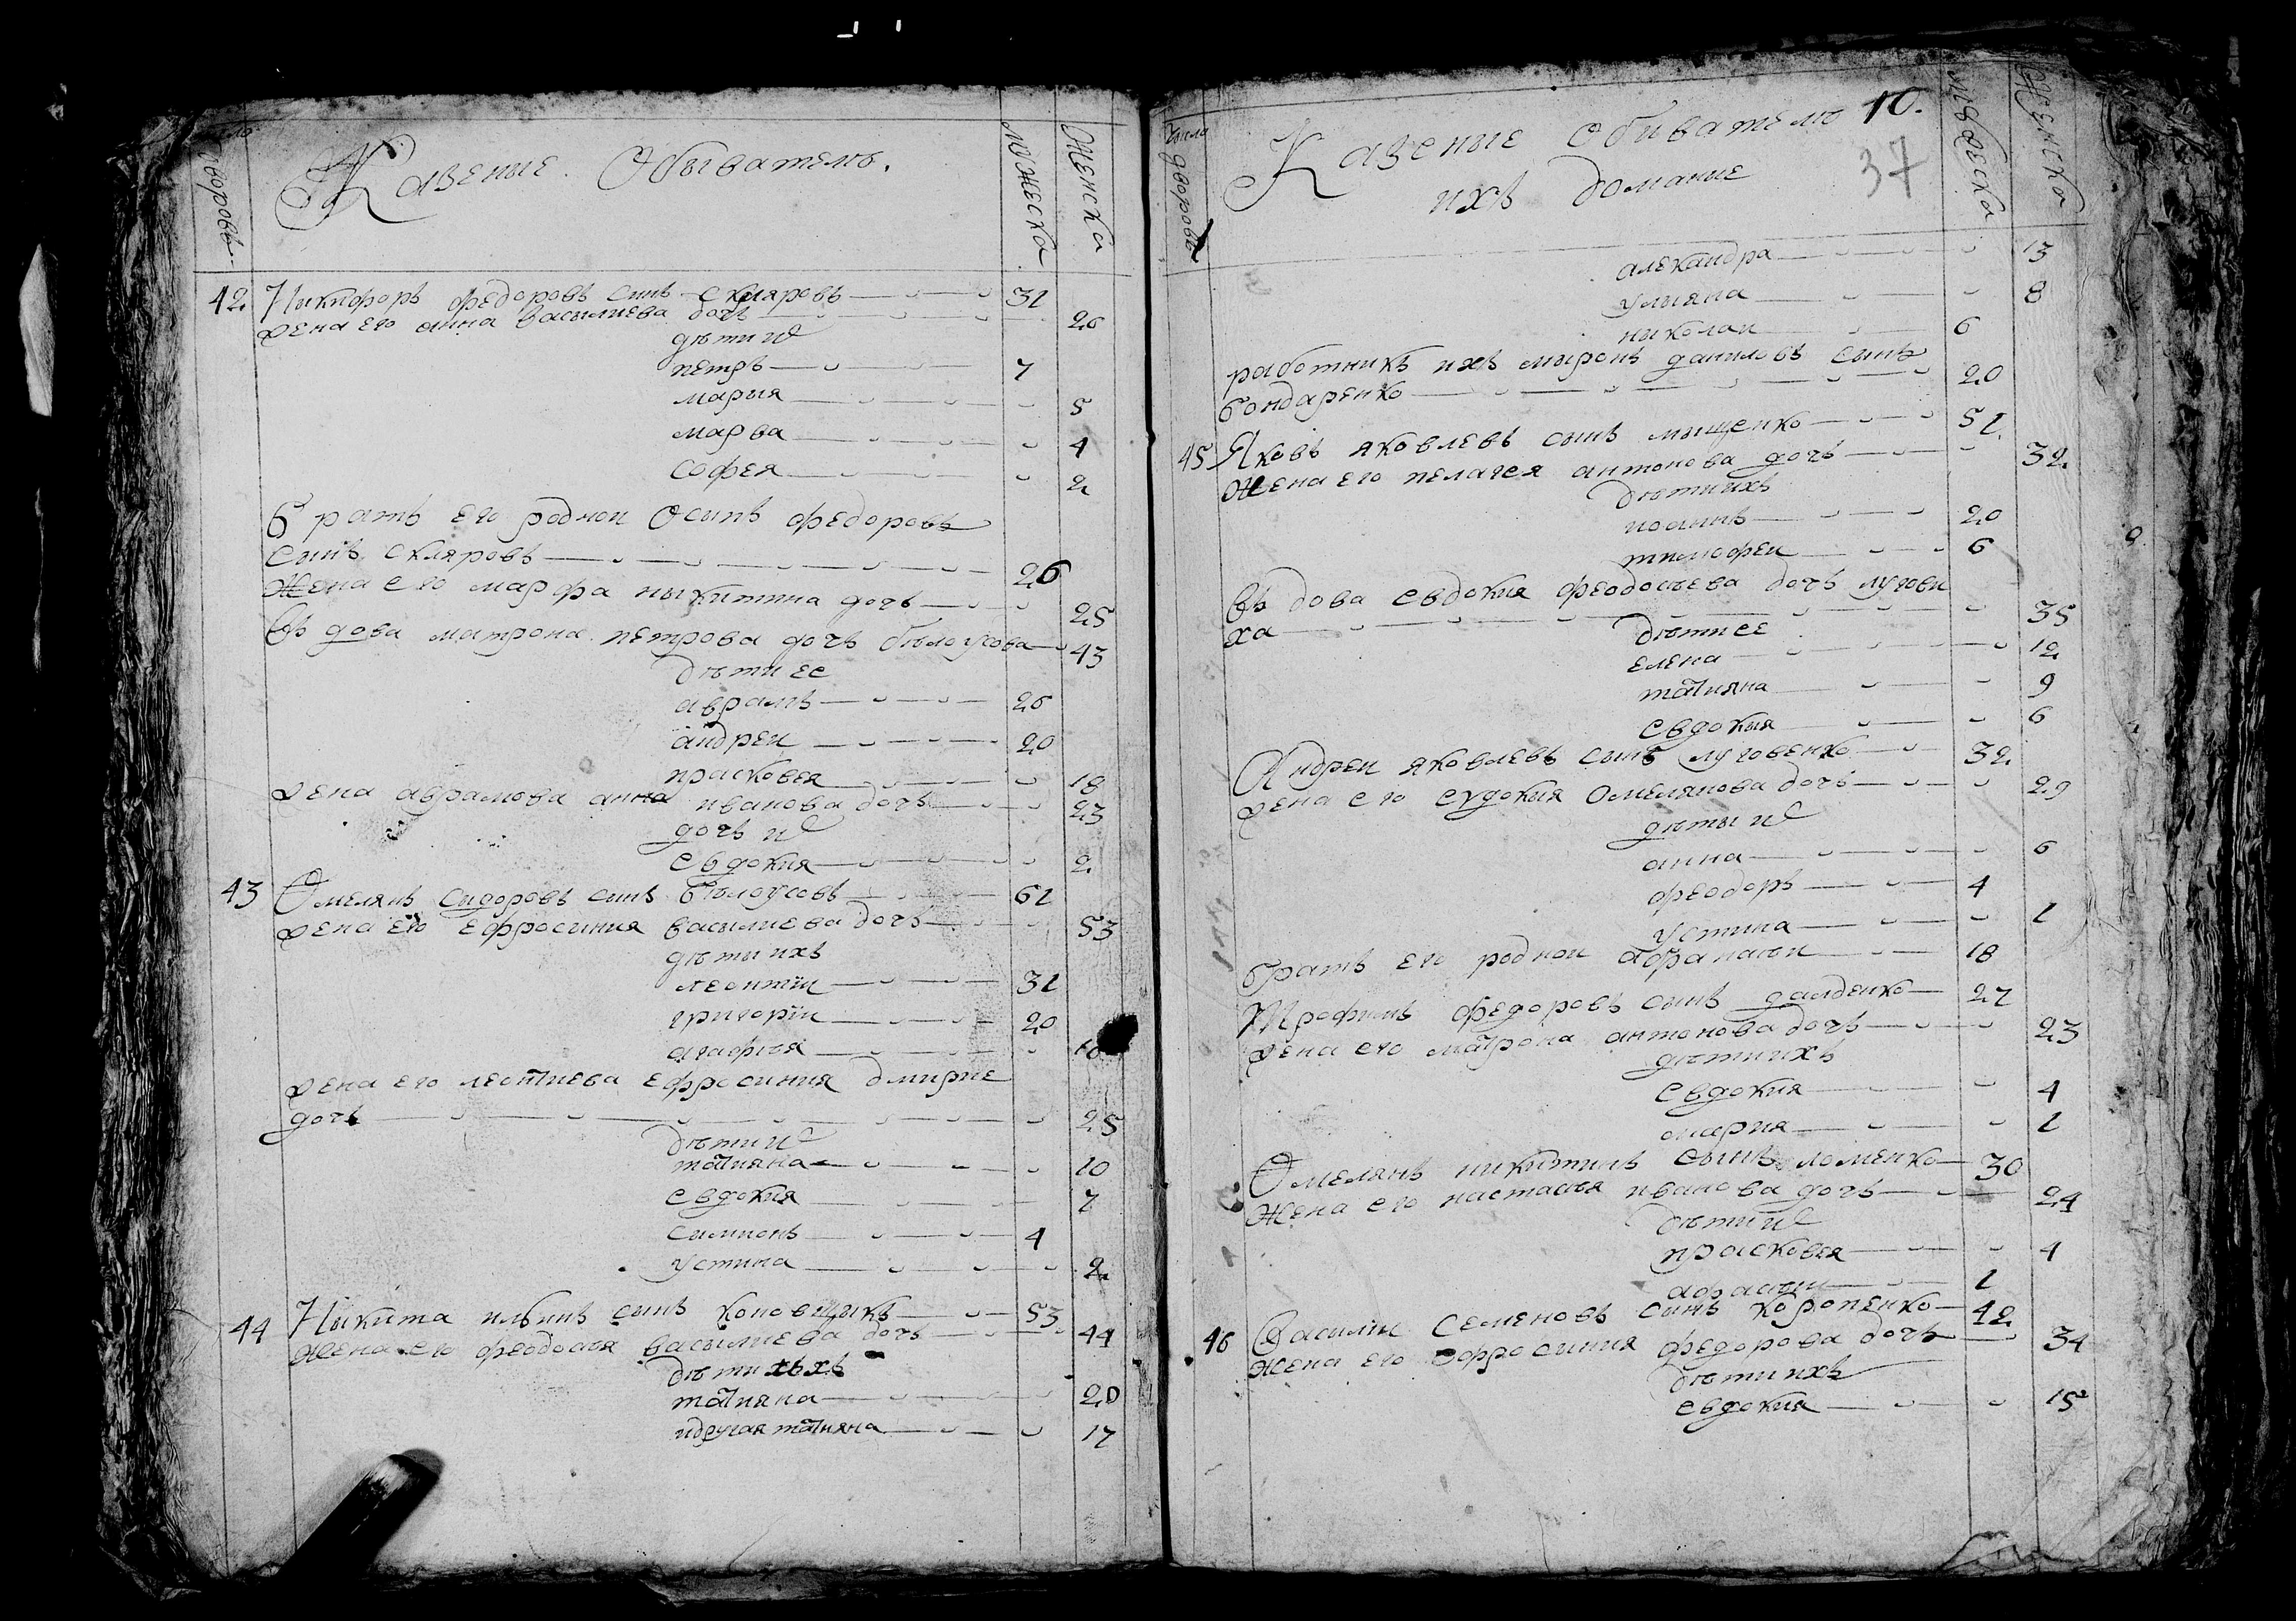 число
дворовъ
Казеные Обыватели.
мужеска
женска
42. Никифоръ федоровъ синъ скляровъ 31
жена его анна василиева дочь 26
дѣти ис
петръ 7
мария 5
марва 4
софея 2
Братъ его родной Осипъ федоровъ
сынъ скляровъ 26
Жена его марфа никитина дочь 25
Въдова матрона петрова дочь бѣлоусова 43
дѣти ее
аврамъ 26
андреи 20
прасковея 18
жена аврамова анна иванова дочь 23
дочь ис
евдокия 2
43 Омелянъ сидоровъ синъ бѣлоусовъ 61
жена его ефросиния василиева дочь 53
дѣти ихъ
леонтїи 31
григорїи 20
агафия
жена его леонтиева ефросиния дмирие
дочь 25
дѣти ис
татияна 10
евдокия 7
симионъ 4
устина 2
44 Никита илинъ синъ коновщикъ 53
жена его феодосия василиева дочь 44
дѣти ихъ
татияна 20
идругая татияна 17
число дворовъ
Казеные Обиватели 10.
ихъ домание
37
мужеска
женска
алекандра 13
улияна 8
николаи 6
работникъ ихъ миронъ даниловъ синъ
бондаренко 20
45 Яковъ яковлевъ сынъ мищенко 51
Жена его пелагея антонова дочь 32
дѣти ихъ
иоаннъ 20
тимофеи 6
Въдова евдокия феодосъева дочь лугови
ха 35
дѣти ее
елена 12
татияна 9
евдокия 6
Андреи яковлевъ синъ луговенко 32
жена его еудокия омелянова дочь 29
дѣти ис
анна 6
феодоръ 4
устина 1
братъ его роднои афанасеи 18
Трофимъ федоровъ синъ далденко 27
жена его матрона антонова дочь 23
дѣти ихъ
евдокия 4
мария 1
Омелянъ никитинъ синъ ломенко 30
Жена его настасъя иванова дочь 24
дѣти ис
прасковея 4
афанасии 1
46 Василии Семеновъ синъ коропенко 42
жена его ефросиния федорова дочь 34
дѣти ихъ
евдокия 15